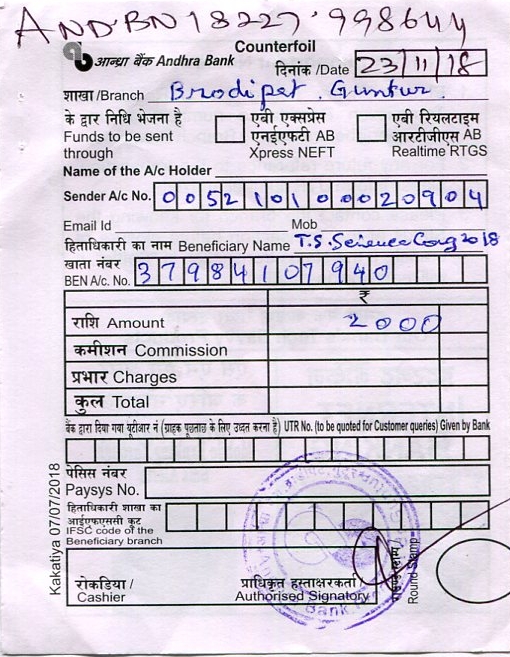 ANDBN18227.998644
Counterfoil
आन्ध्रा बैंक Andhra Bank
दिनांक /Date 23/11/18
शाखा /Branch Brodipet. Guntur
के द्वारा निधि भेजना है
Funds to be sent
through
एबी एक्सप्रेस
एनईएफटी AB
Xpress NEFT
एबी रियलटाइम
आरटीजीएस AB
Realtime RTGS
Name of the A/c Holder
Sender A/c No. 005210100020904
Email Id Mob
हिताधिकारी का नाम Beneficiary Name T.S. Science Cong 2018
खाता नंबर
BEN A/c. No. 37984107940
₹
राशि Amount 2000
कमीशन Commission
प्रभार Charges
कुल Total
बैंक द्वारा दिया गया यूटीआर नं (ग्राहक पूछताछ के लिए उध्दत करना है) UTR No. (to be quoted for Customer queries) Given by Bank
पेसिस नंबर
Paysys No.
हिताधिकारी शाखा का
आईएफएससी कूट
IFSC code of the
Beneficiary branch
रोकडिया /
Cashier
प्राधिकृत हस्ताक्षरकर्ता /
Authorised Signatory
Round Stamp
Kakatiya 07/07/2018